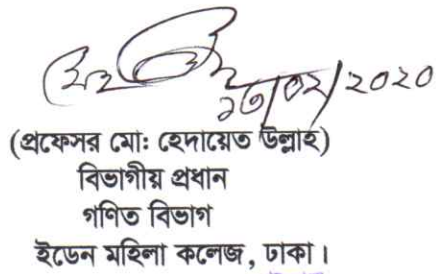 ১৩/০২/২০২০
(প্রফেসর মো: হেদায়েত উল্লাহ)
বিভাগীয় প্রধান
গণিত বিভাগ
ইডেন মহিলা কলেজ, ঢাকা।